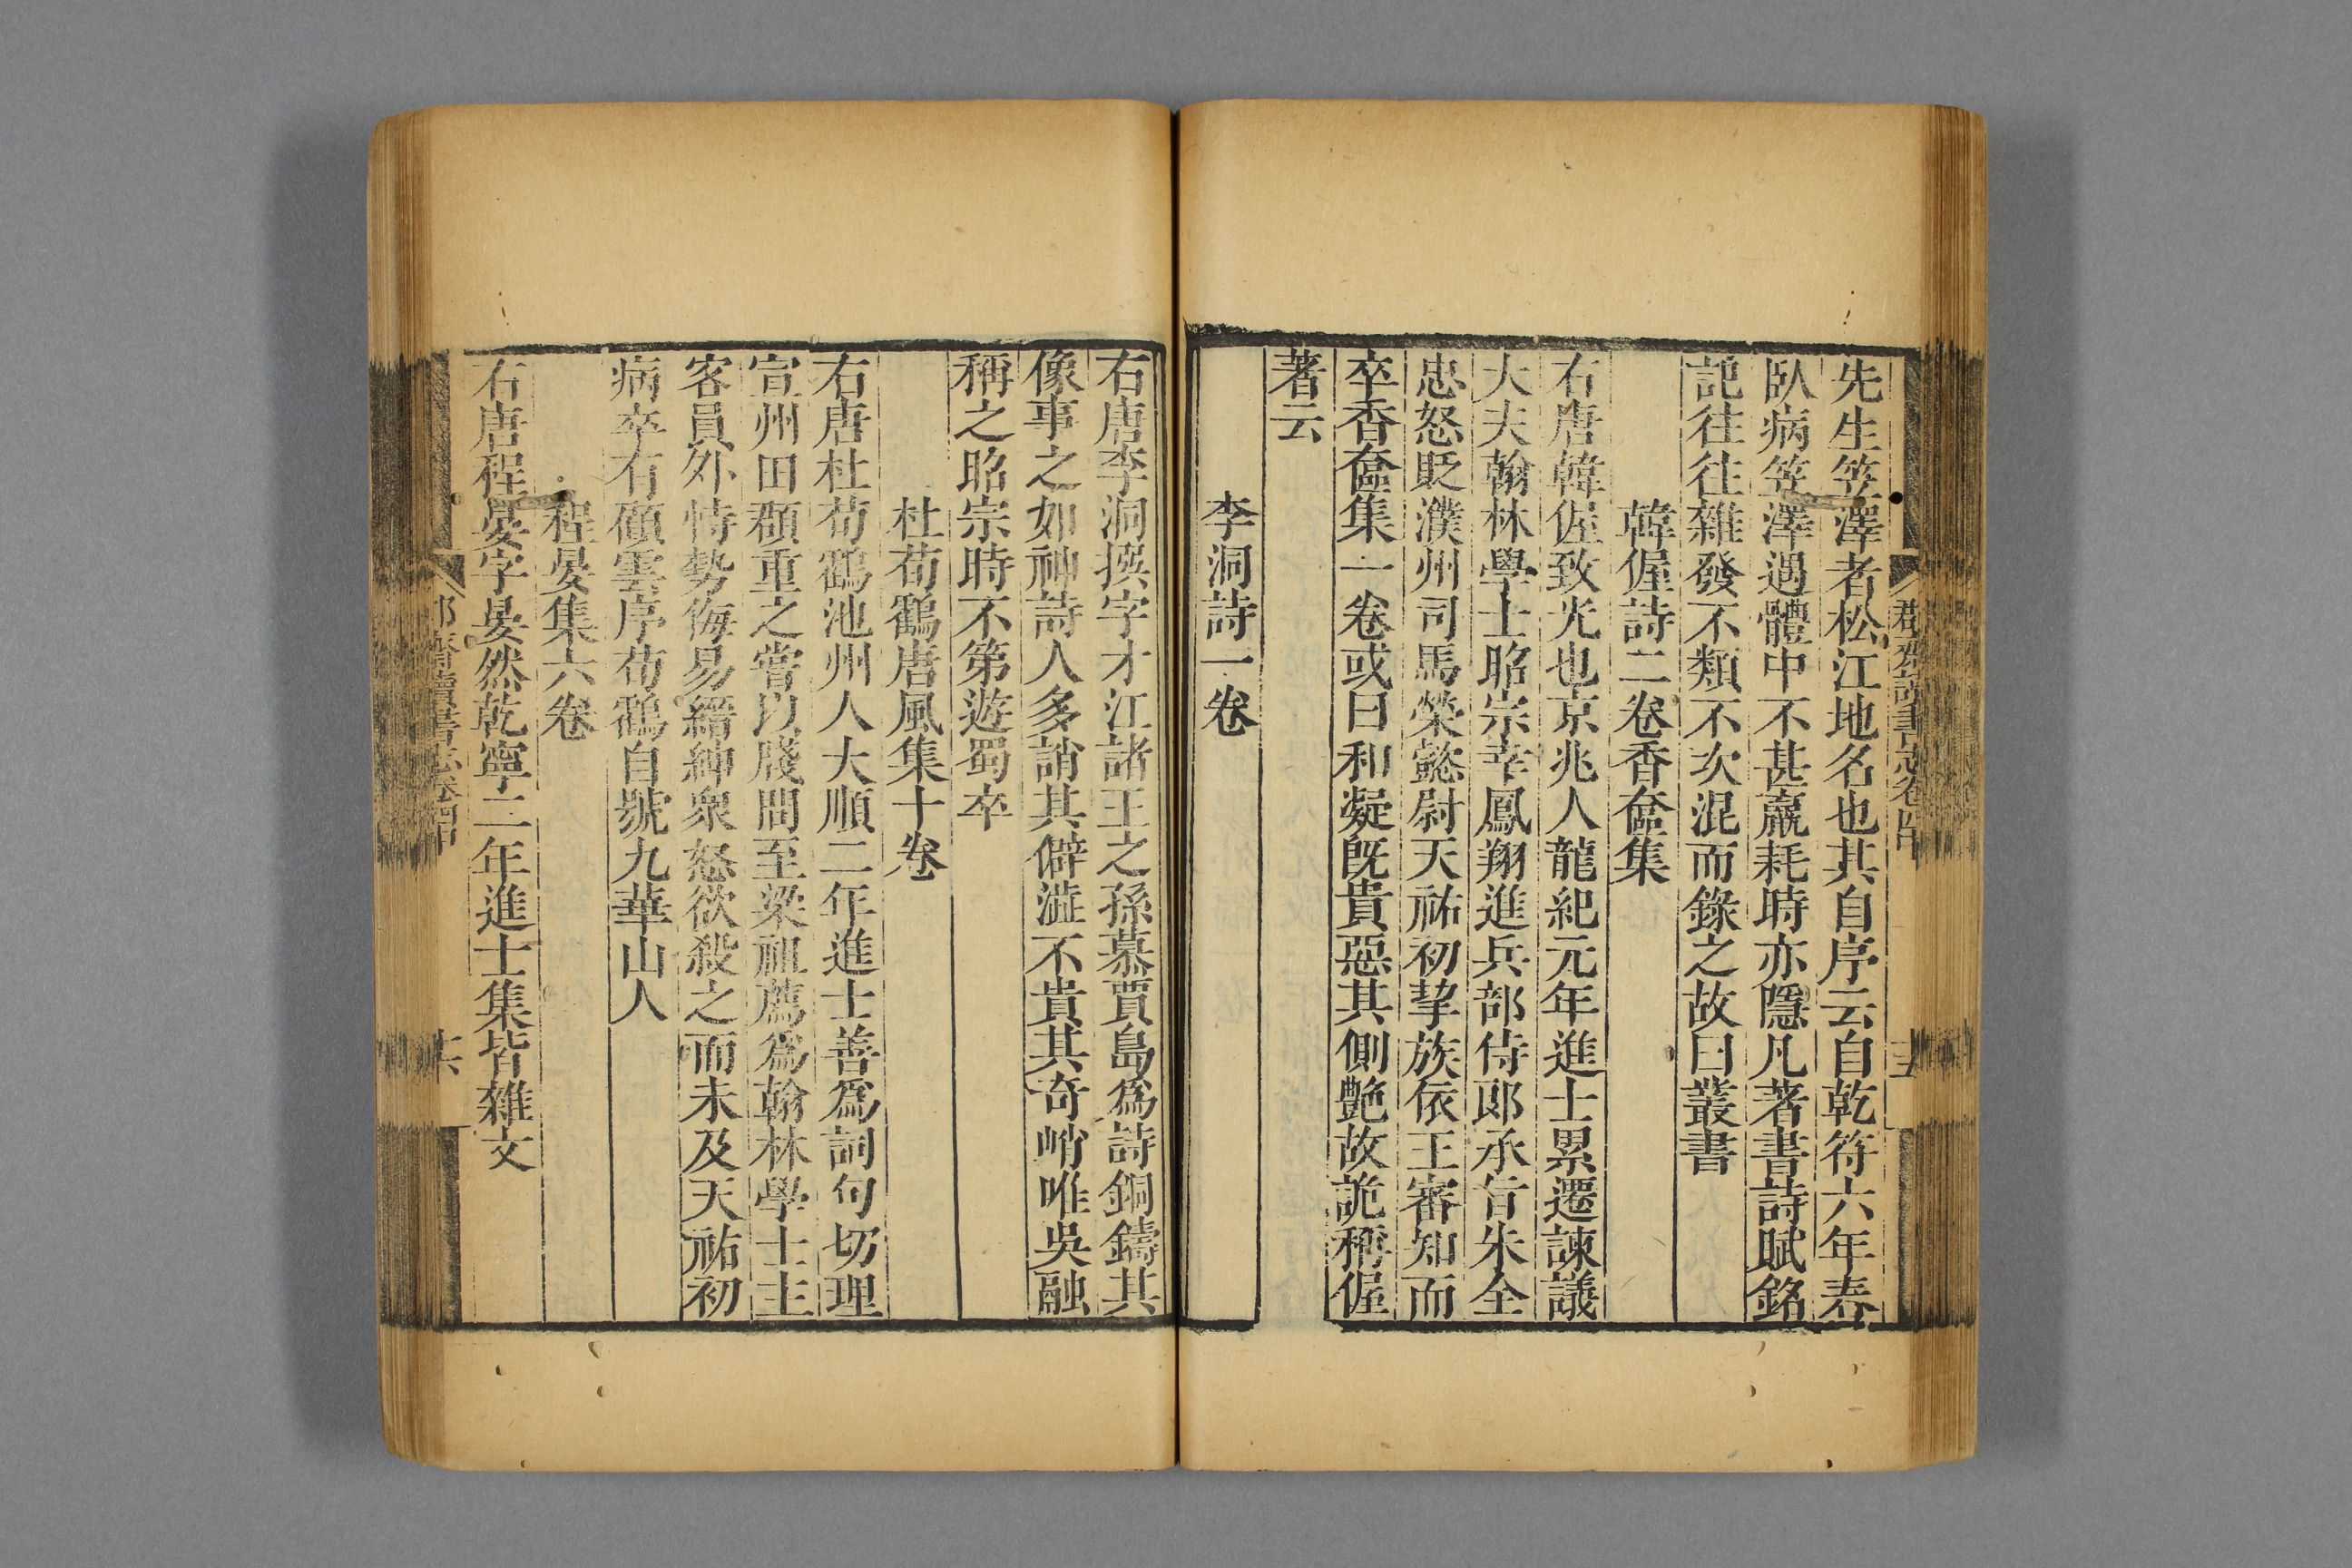 郡齋讀書志卷四中
十五
先生笠澤者松江地名也其自序云自乾符六年春
臥病笠澤遇體中不甚羸耗時亦隱几著書詩賦銘
記往往雜發不類不次混而錄之故曰叢書
韓偓詩二卷香奩集
右唐韓偓致光也京兆人龍紀元年進士累遷諫議
大夫翰林學士昭宗幸鳳翔進兵部侍郎承旨朱全
忠怒貶濮州司馬榮懿尉天祐初挈族依王審知而
卒香奩集一卷或曰和凝旣貴惡其側艷故詭稱偓
著云
李洞詩一卷
右唐李洞撰字才江諸王之孫慕賈島爲詩銅鑄其
像事之如神詩人多誚其僻澁不貴其奇峭唯吳融
稱之昭宗時不第遊蜀卒
杜荀鶴唐風集十卷
右唐杜荀鶴池州人大順二年進士善爲詞句切理
宣州田頵重之嘗以牋問至梁祖薦爲翰林學士主
客員外恃勢侮易縉紳衆怒欲殺之而未及天祐初
病卒有顧雲序荀鶴自號九華山人
程晏集六卷
右唐程晏字晏然乾寧二年進士集皆雜文
郡齋讀書志卷四中
十六